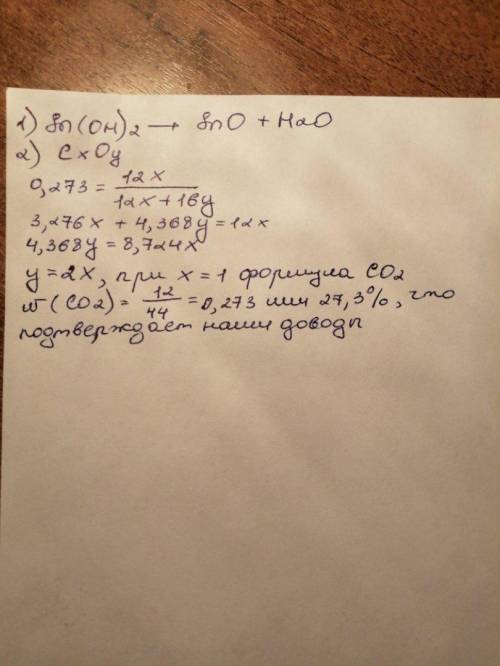 1) Sn(OH)2 → SnO + H2O
2) CxOy
0,273 = 12x / 12x + 16y
3,276x + 4,368y = 12x
4,368y = 8,724x
y = 2x, при x = 1 формула CO2
w(CO2) = 12 / 44 = 0,273 или 27,3%, что
подтверждает наши доводы